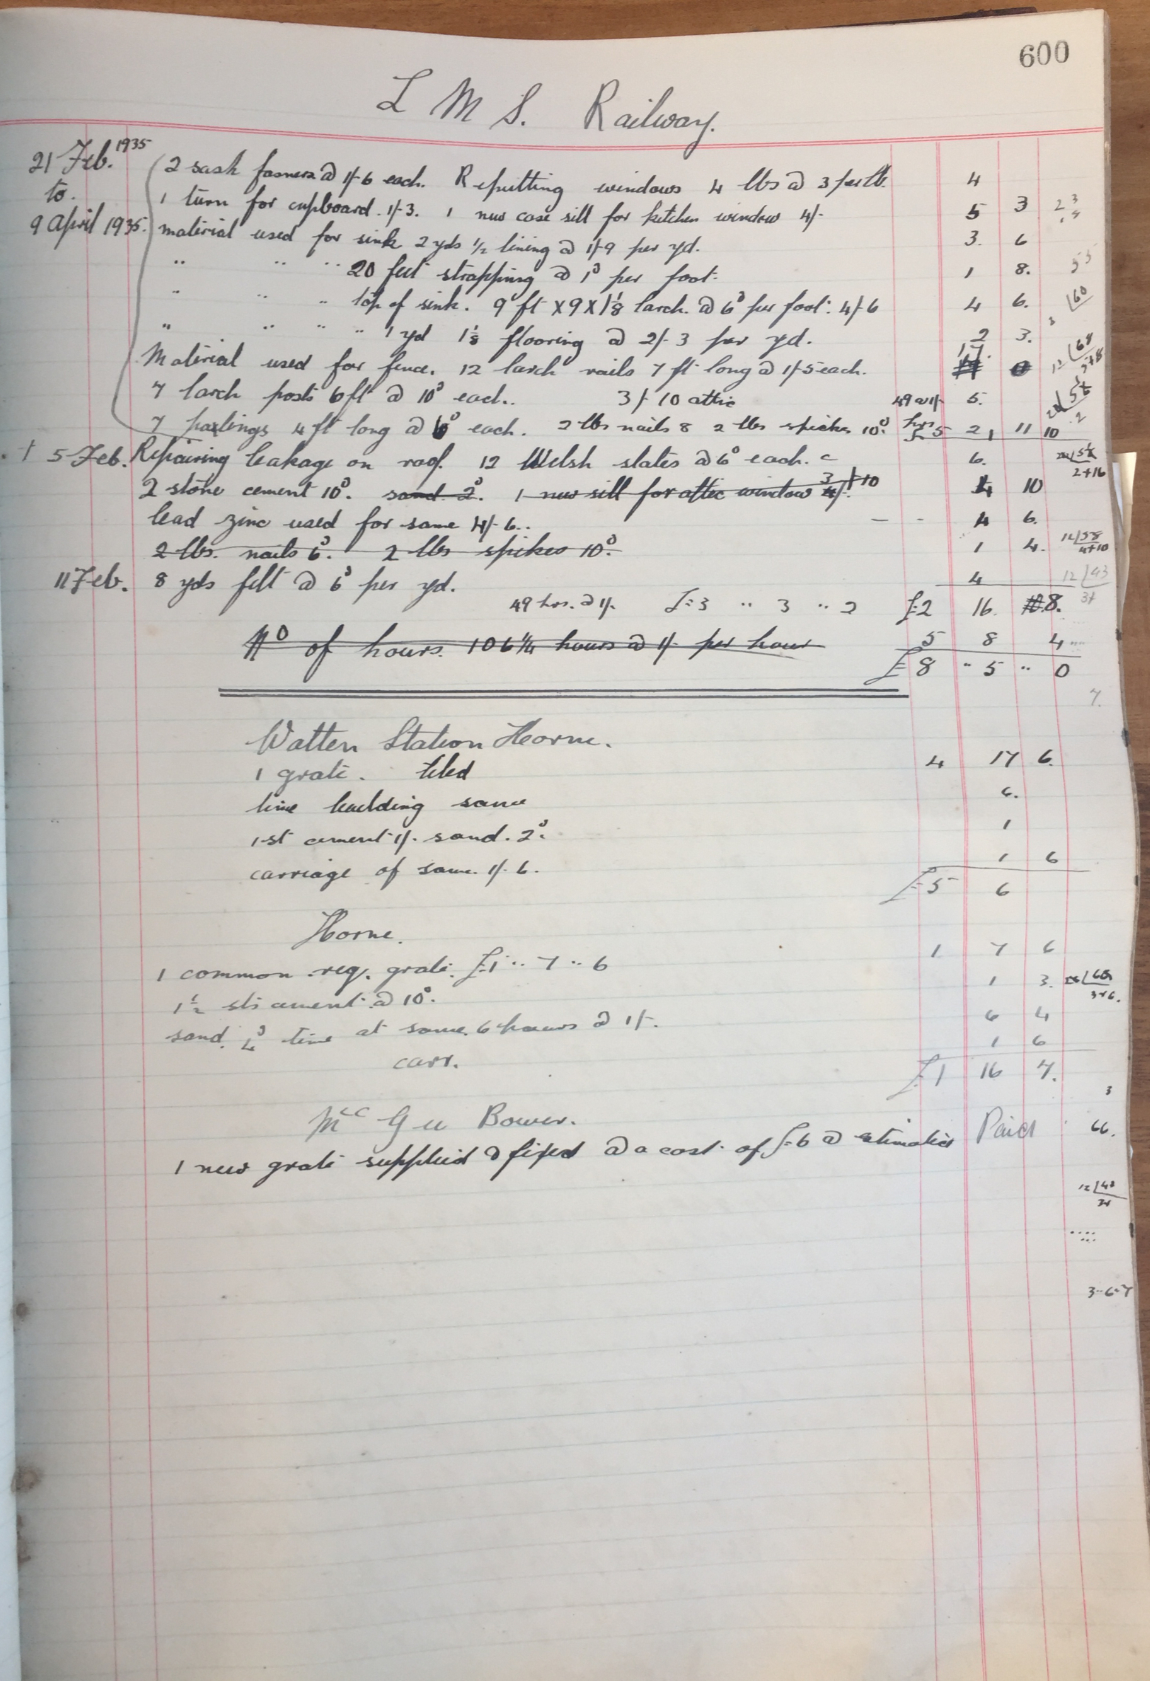 600
L M S. Railway.
21 Feb. 1935 2 sash fasners @ 1/-6 each. Reputting windows 4 lbs @ 3 per lb. 4
to. 1 turn for cupboard. 1/-3. 1 new case sill for kitchen window 4/- 5 3
9 April 1935. material used for sink 2 yds 1/2 lining @ 1/-9 per yd. 3. 6
" " " 20 feet strapping @ 1ᵈ per foot. 1 8.
" " " top of sink. 9 ft x 9 x 1 1/8 larch. @ 6ᵈ per foot. 4/-6 4 6.
" " " " 1 yd 1 1/8 flooring @ 2/-3 per yd. 2 3.
Material used for fence. 12 larch rails 7 ft long @ 1/-5 each. 17.
7 larch posts 6 ft @ 10ᵈ each. 3/-10 attic 49 @ 1/- 5.
7 pailings 4 ft long @ 6ᵈ each. 2 lbs nails & 2 lbs spikes 10ᵈ. £5 2, 11 10
5 Feb. Repairing leakage on roof. 12 Welsh slates @ 6ᵈ each. 6.
2 stone cement 10ᵈ. sand 2ᵈ. 1 new sill for attic window 3/-10 4 10
lead zinc used for same 4/-6. 4 6.
2 lbs. nails 6ᵈ. 2 lbs spikes 10ᵈ. 1 4.
11 Feb. 8 yds felt @ 6ᵈ per yd. 4
49 hrs. @ 1/- £3 .. 3 .. 2 £2 16. 8.
Nº of hours. 106 1/4 hours @ 1/- per hour 5 8 4
£8 .. 5 .. 0
Watten Station Horne.
1 grate. tiled 4 17 6.
time building same 6.
1 st cement 1/-. sand. 2ᵈ. 1
carriage of same. 1/-6. 1 6
£5 6
Horne.
1 common reg. grate. £1 .. 7 .. 6 1 7 6
1 1/2 sts cement @ 10ᵈ. 1 3.
sand. 4ᵈ time at same. 6 hours @ 1/-. 6 4
carr. 1 6
£1 16 7.
Mcc Gee Bower.
1 new grate supplied & fixed @ a cost of £6 @ estimated Paid 66.
12/43
3-6-7